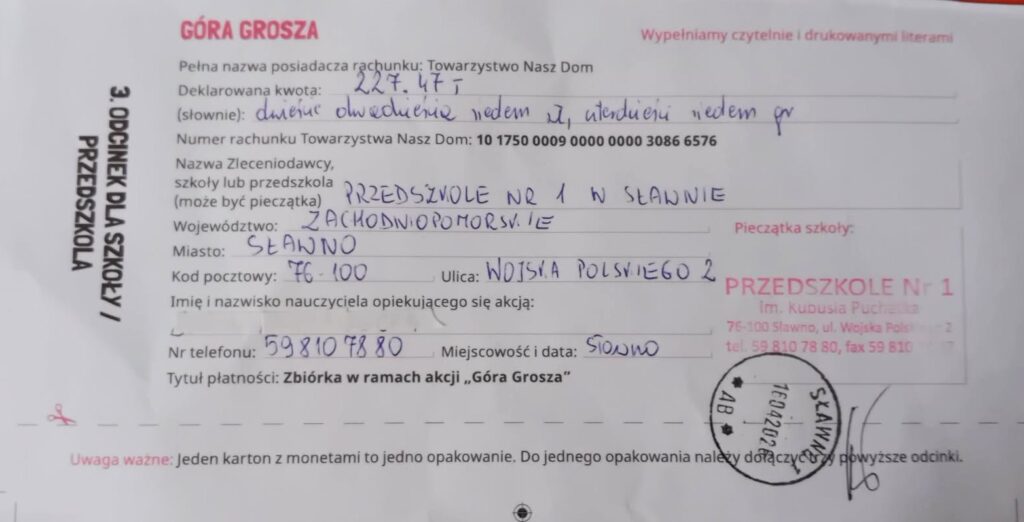 GÓRA GROSZA
Wypełniamy czytelnie i drukowanymi literami
3. ODCINEK DLA SZKOŁY /
PRZEDSZKOLA
Pełna nazwa posiadacza rachunku: Towarzystwo Nasz Dom
Deklarowana kwota: 227.47
(słownie): dwieście dwadzieścia siedem zł, czterdzieści siedem gr
Numer rachunku Towarzystwa Nasz Dom: 10 1750 0009 0000 0000 3086 6576
Nazwa Zleceniodawcy,
szkoły lub przedszkola
(może być pieczątka) PRZEDSZKOLE NR 1 W SŁAWNIE
Województwo: ZACHODNIOPOMORSKIE
Miasto: SŁAWNO
Kod pocztowy: 76-100 Ulica: WOJSKA POLSKIEGO 2
Imię i nazwisko nauczyciela opiekującego się akcją:
Nr telefonu: 598107880 Miejscowość i data: Sławno
Tytuł płatności: Zbiórka w ramach akcji „Góra Grosza”
Pieczątka szkoły:
PRZEDSZKOLE Nr 1
im. Kubusia Puchatka
76-100 Sławno, ul. Wojska Polskiego 2
tel. 59 810 78 80, fax 59 810
SŁAWNO 1
16042026
* AB *
Uwaga ważne: Jeden karton z monetami to jedno opakowanie. Do jednego opakowania należy dołączyć trzy powyższe odcinki.